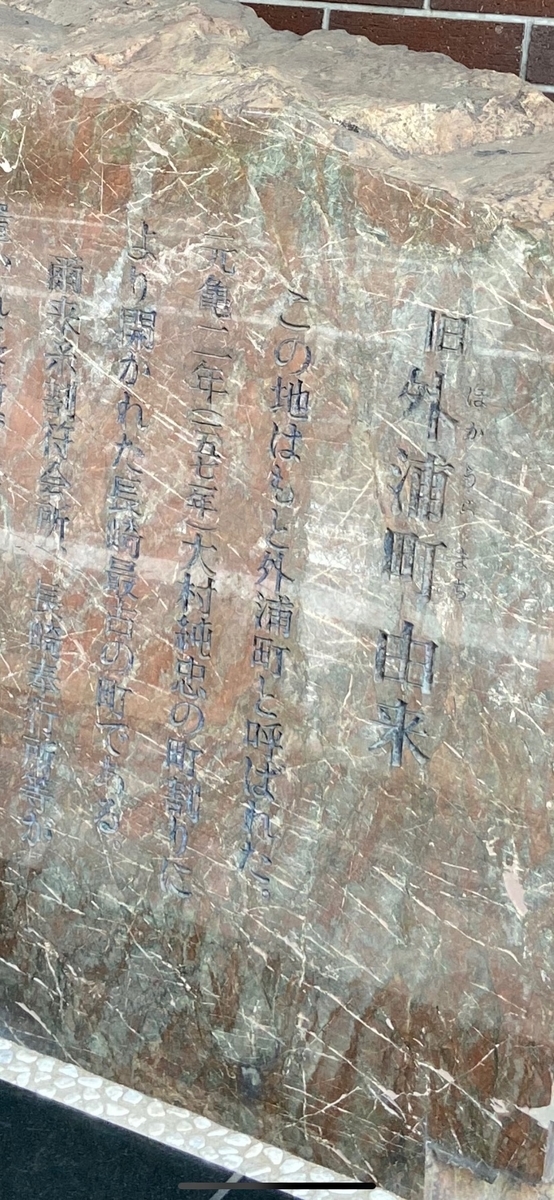 旧外浦町由来
ほかうらまち
この地はもと外浦町と呼ばれた。
元亀二年(一五七一年)大村純忠の町割りに
より開かれた長崎最古の町である。
爾来糸割符会所、長崎奉行所等が